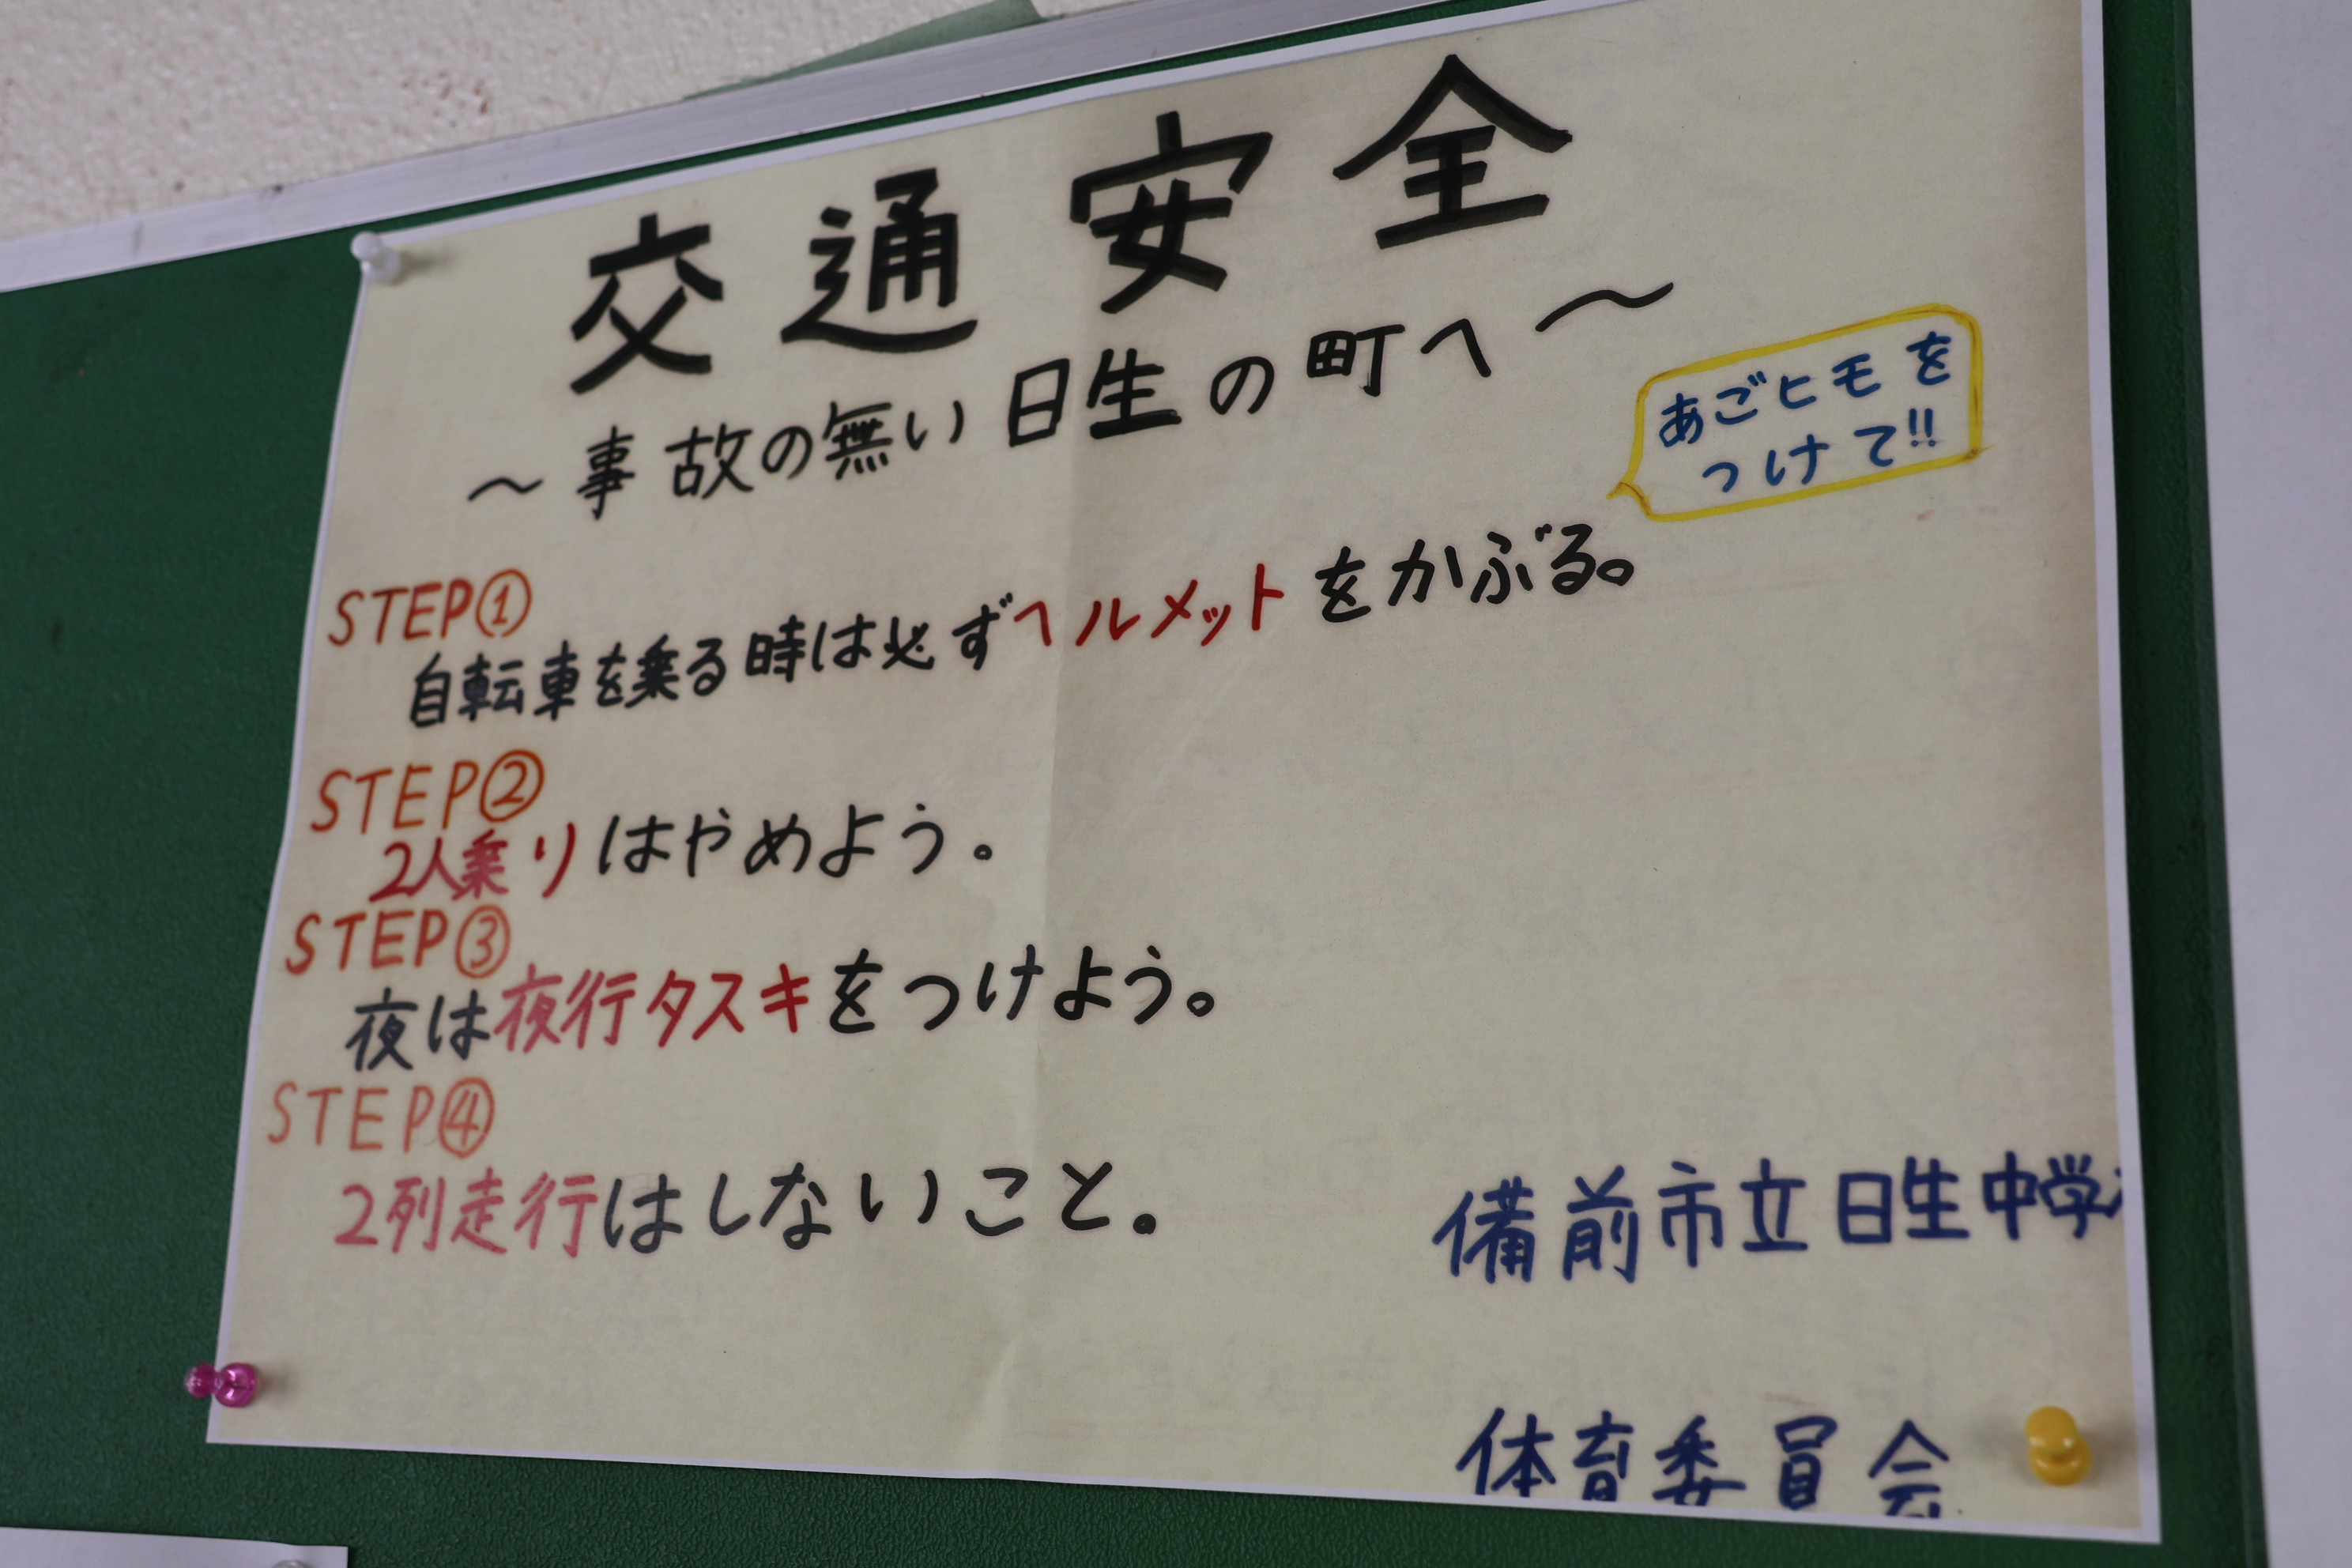 交通安全
～事故の無い日生の町へ～
あごヒモを
つけて!!
STEP①
自転車を乗る時は必ずヘルメットをかぶる。
STEP②
2人乗りはやめよう。
STEP③
夜は夜行タスキをつけよう。
STEP④
2列走行はしないこと.
備前市立日生中学
体育委員会